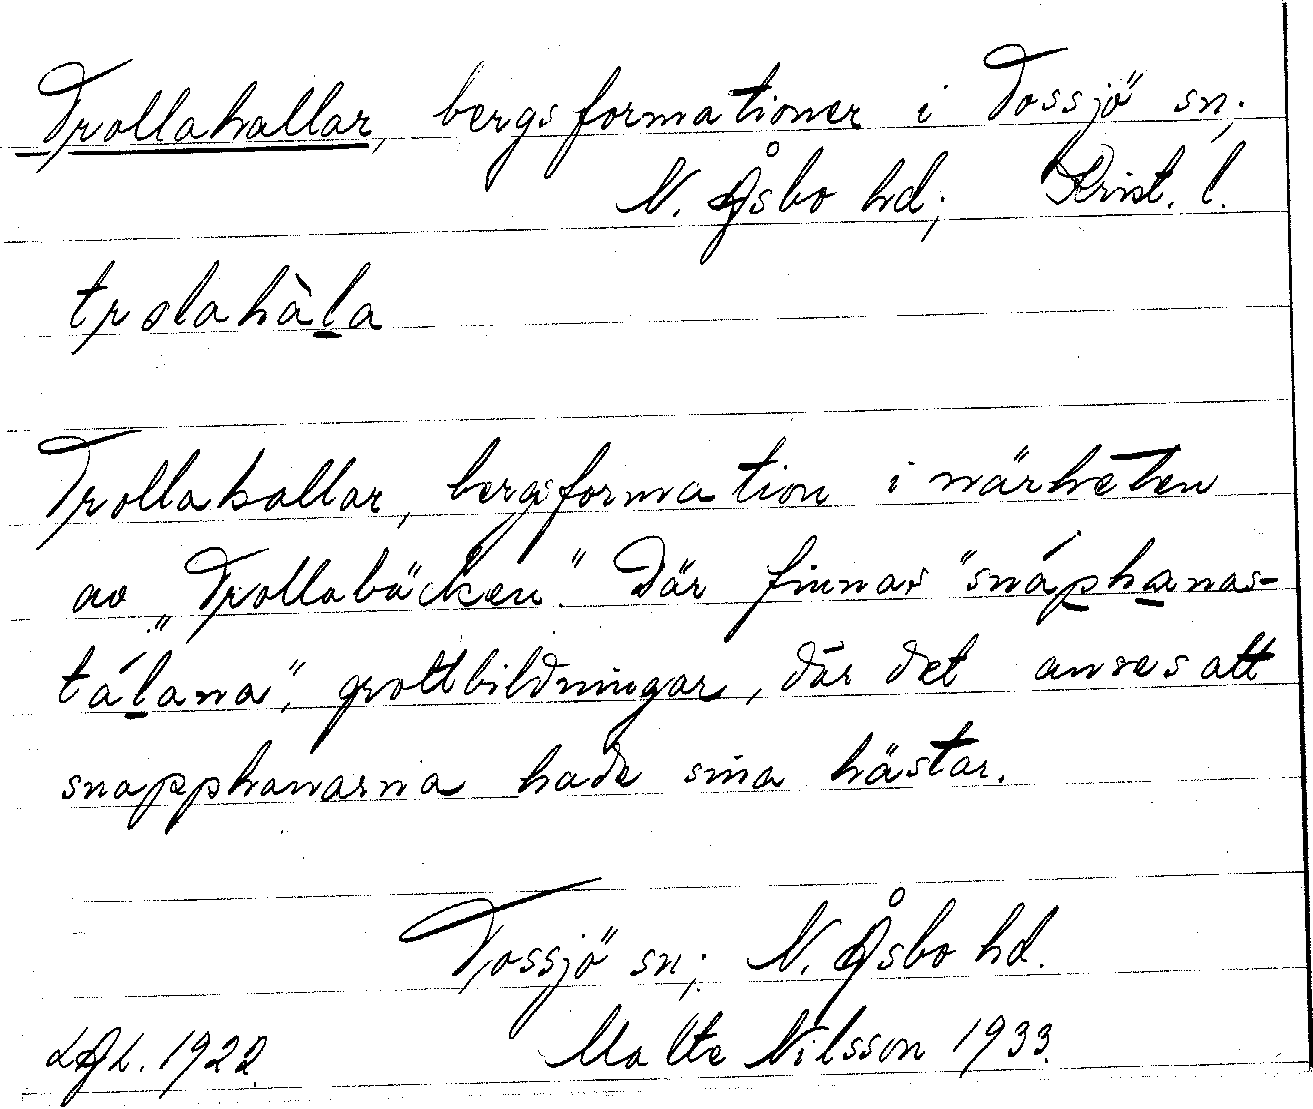 Trollahallar, bergsformationer i Tossjö sn;
N. Åsbo hd; Krist. l.
trolahàla
Trollahallar, bergsformation i närheten
av „Trollabäcken". Där finnas "snáphanas-
tálana", grottbildningar, där det anses att
snapphanarna hade sina hästar.
Tossjö sn; N. Åsbo hd.
LAL. 1922. Malte Nilsson 1933.